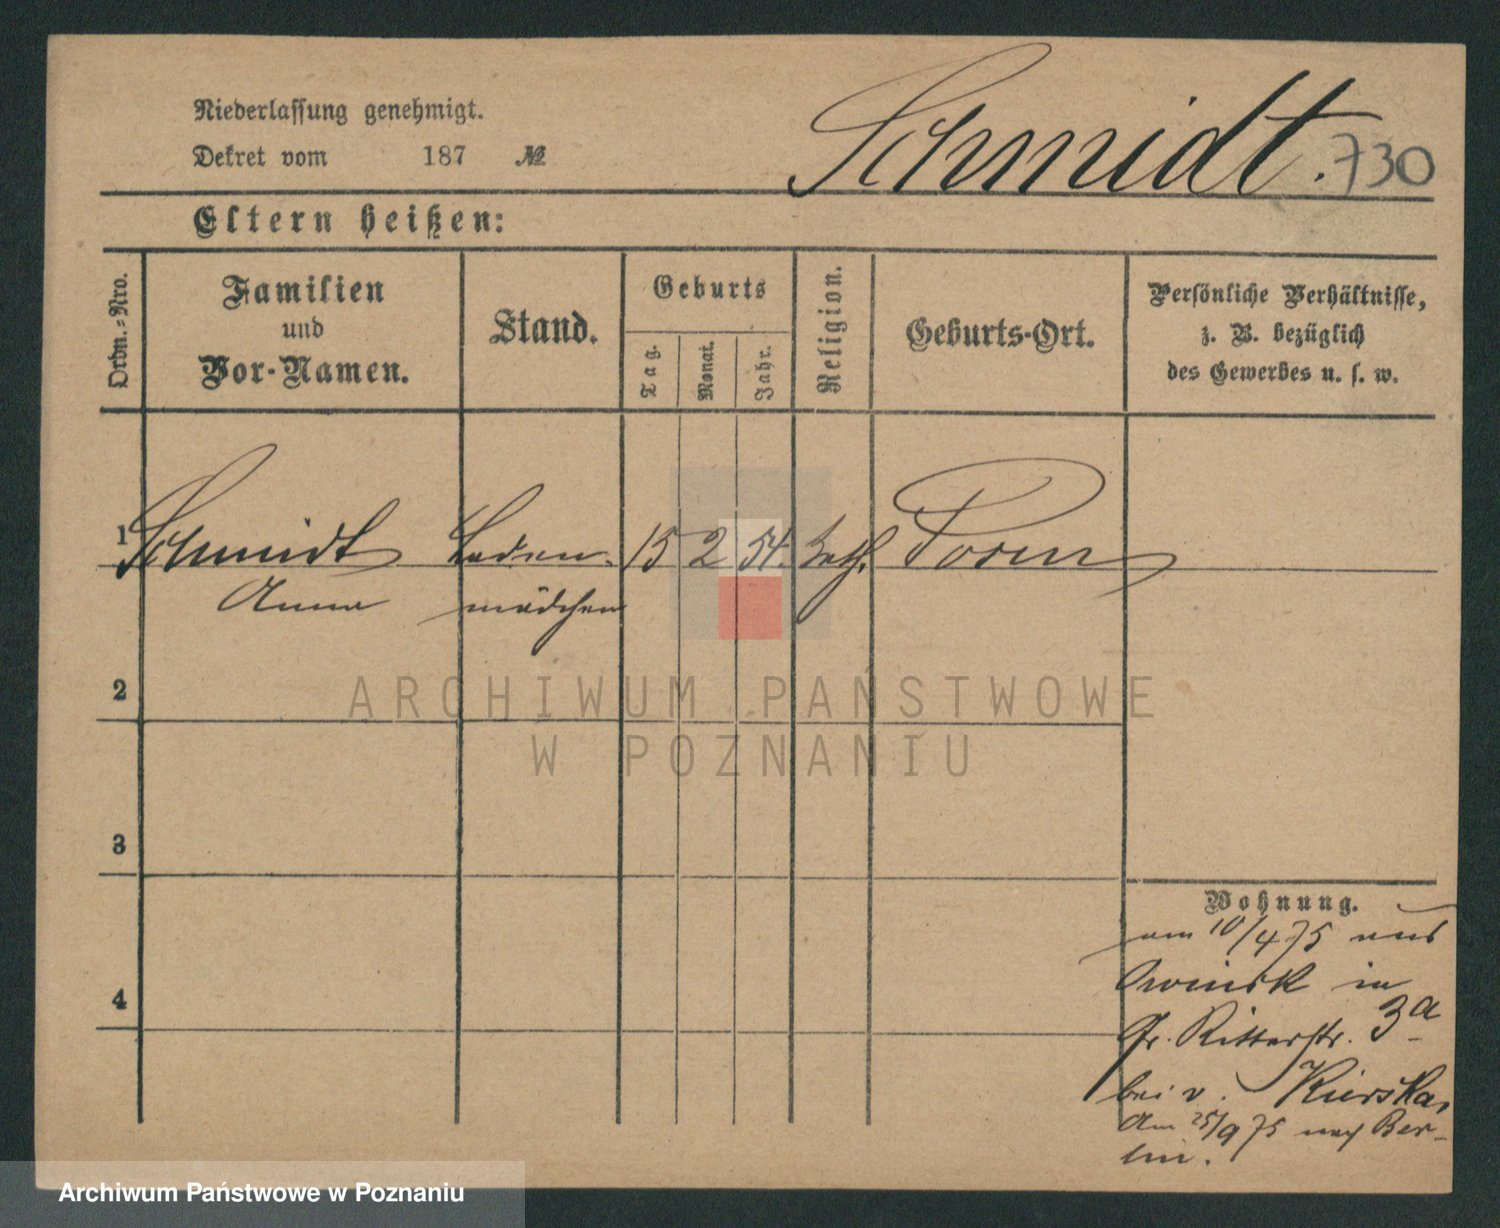 Niederlassung genehmigt.
Dekret vom 187 №
Schmidt. 730
Eltern heißen:
Ordn.-Nro.
Familien
und
Vor-Namen.
Stand.
Geburts
Tag.
Monat.
Jahr.
Religion.
Geburts-Ort.
Persönliche Verhältnisse,
z. B. bezüglich
des Gewerbes u. s. w.
1 Schmidt Laden- 15 2 54. kath. Posen
Anna mädchen
2
3
4
Wohnung.
am 10/4 75 aus
Owinsk in
Gr. Ritterstr. 3a
bei v. Kierska,
Am 25/9 75 nach Ber-
lin.
ARCHIWUM PAŃSTWOWE
W POZNANIU
Archiwum Państwowe w Poznaniu